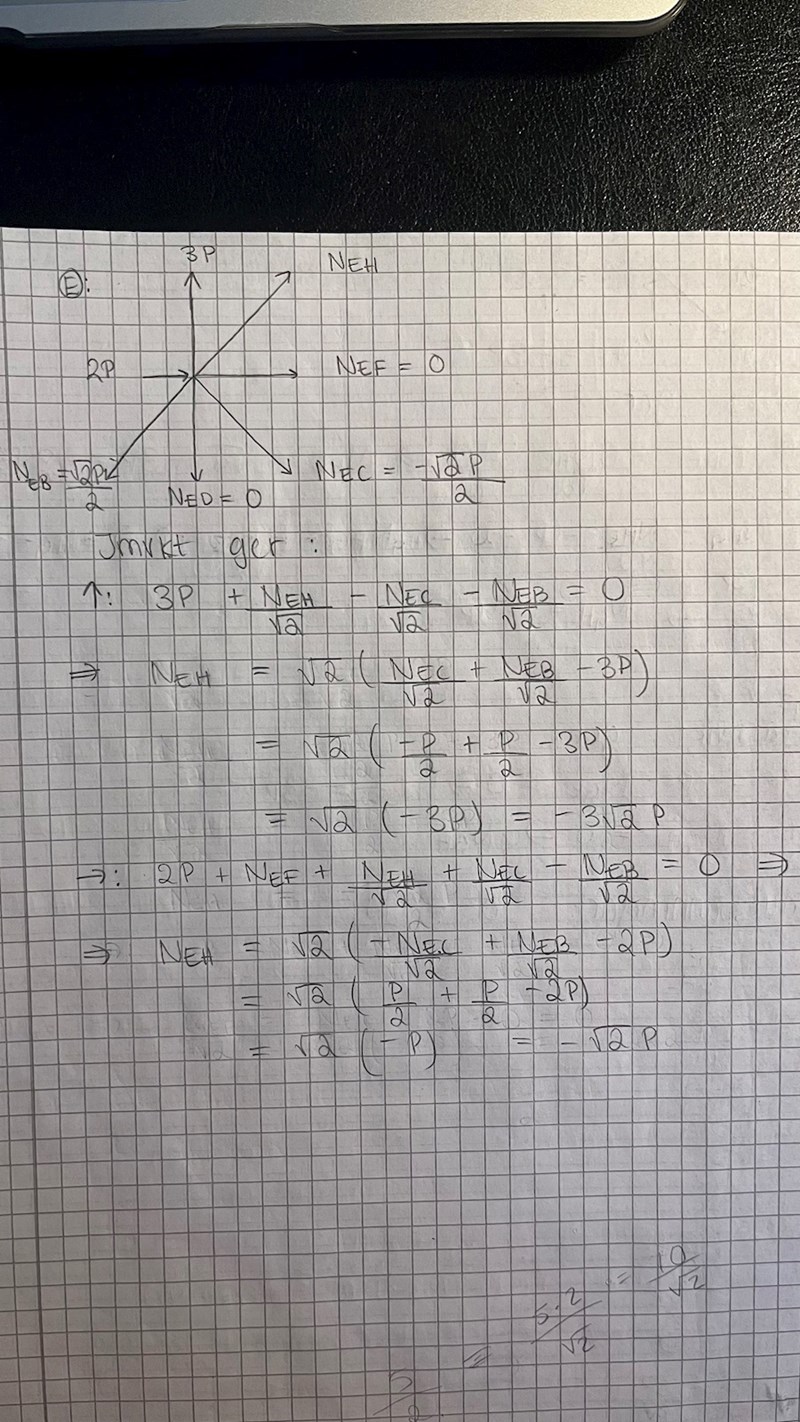 3P
N_EH
Ⓔ:
2P
N_EF = 0
N_EB = √2P/2
N_ED = 0
N_EC = -√2P/2
Jmvkt ger :
↑: 3P + N_EH/√2 - N_EC/√2 - N_EB/√2 = 0
⇒ N_EH = √2 ( N_EC/√2 + N_EB/√2 - 3P )
= √2 ( -P/2 + P/2 - 3P )
= √2 (-3P) = -3√2 P
→: 2P + N_EF + N_EH/√2 + N_EC/√2 - N_EB/√2 = 0 ⇒
⇒ N_EH = √2 ( -N_EC/√2 + N_EB/√2 - 2P )
= √2 ( P/2 + P/2 - 2P )
= √2 (-P) = -√2 P
5·2/√2 = 10/√2